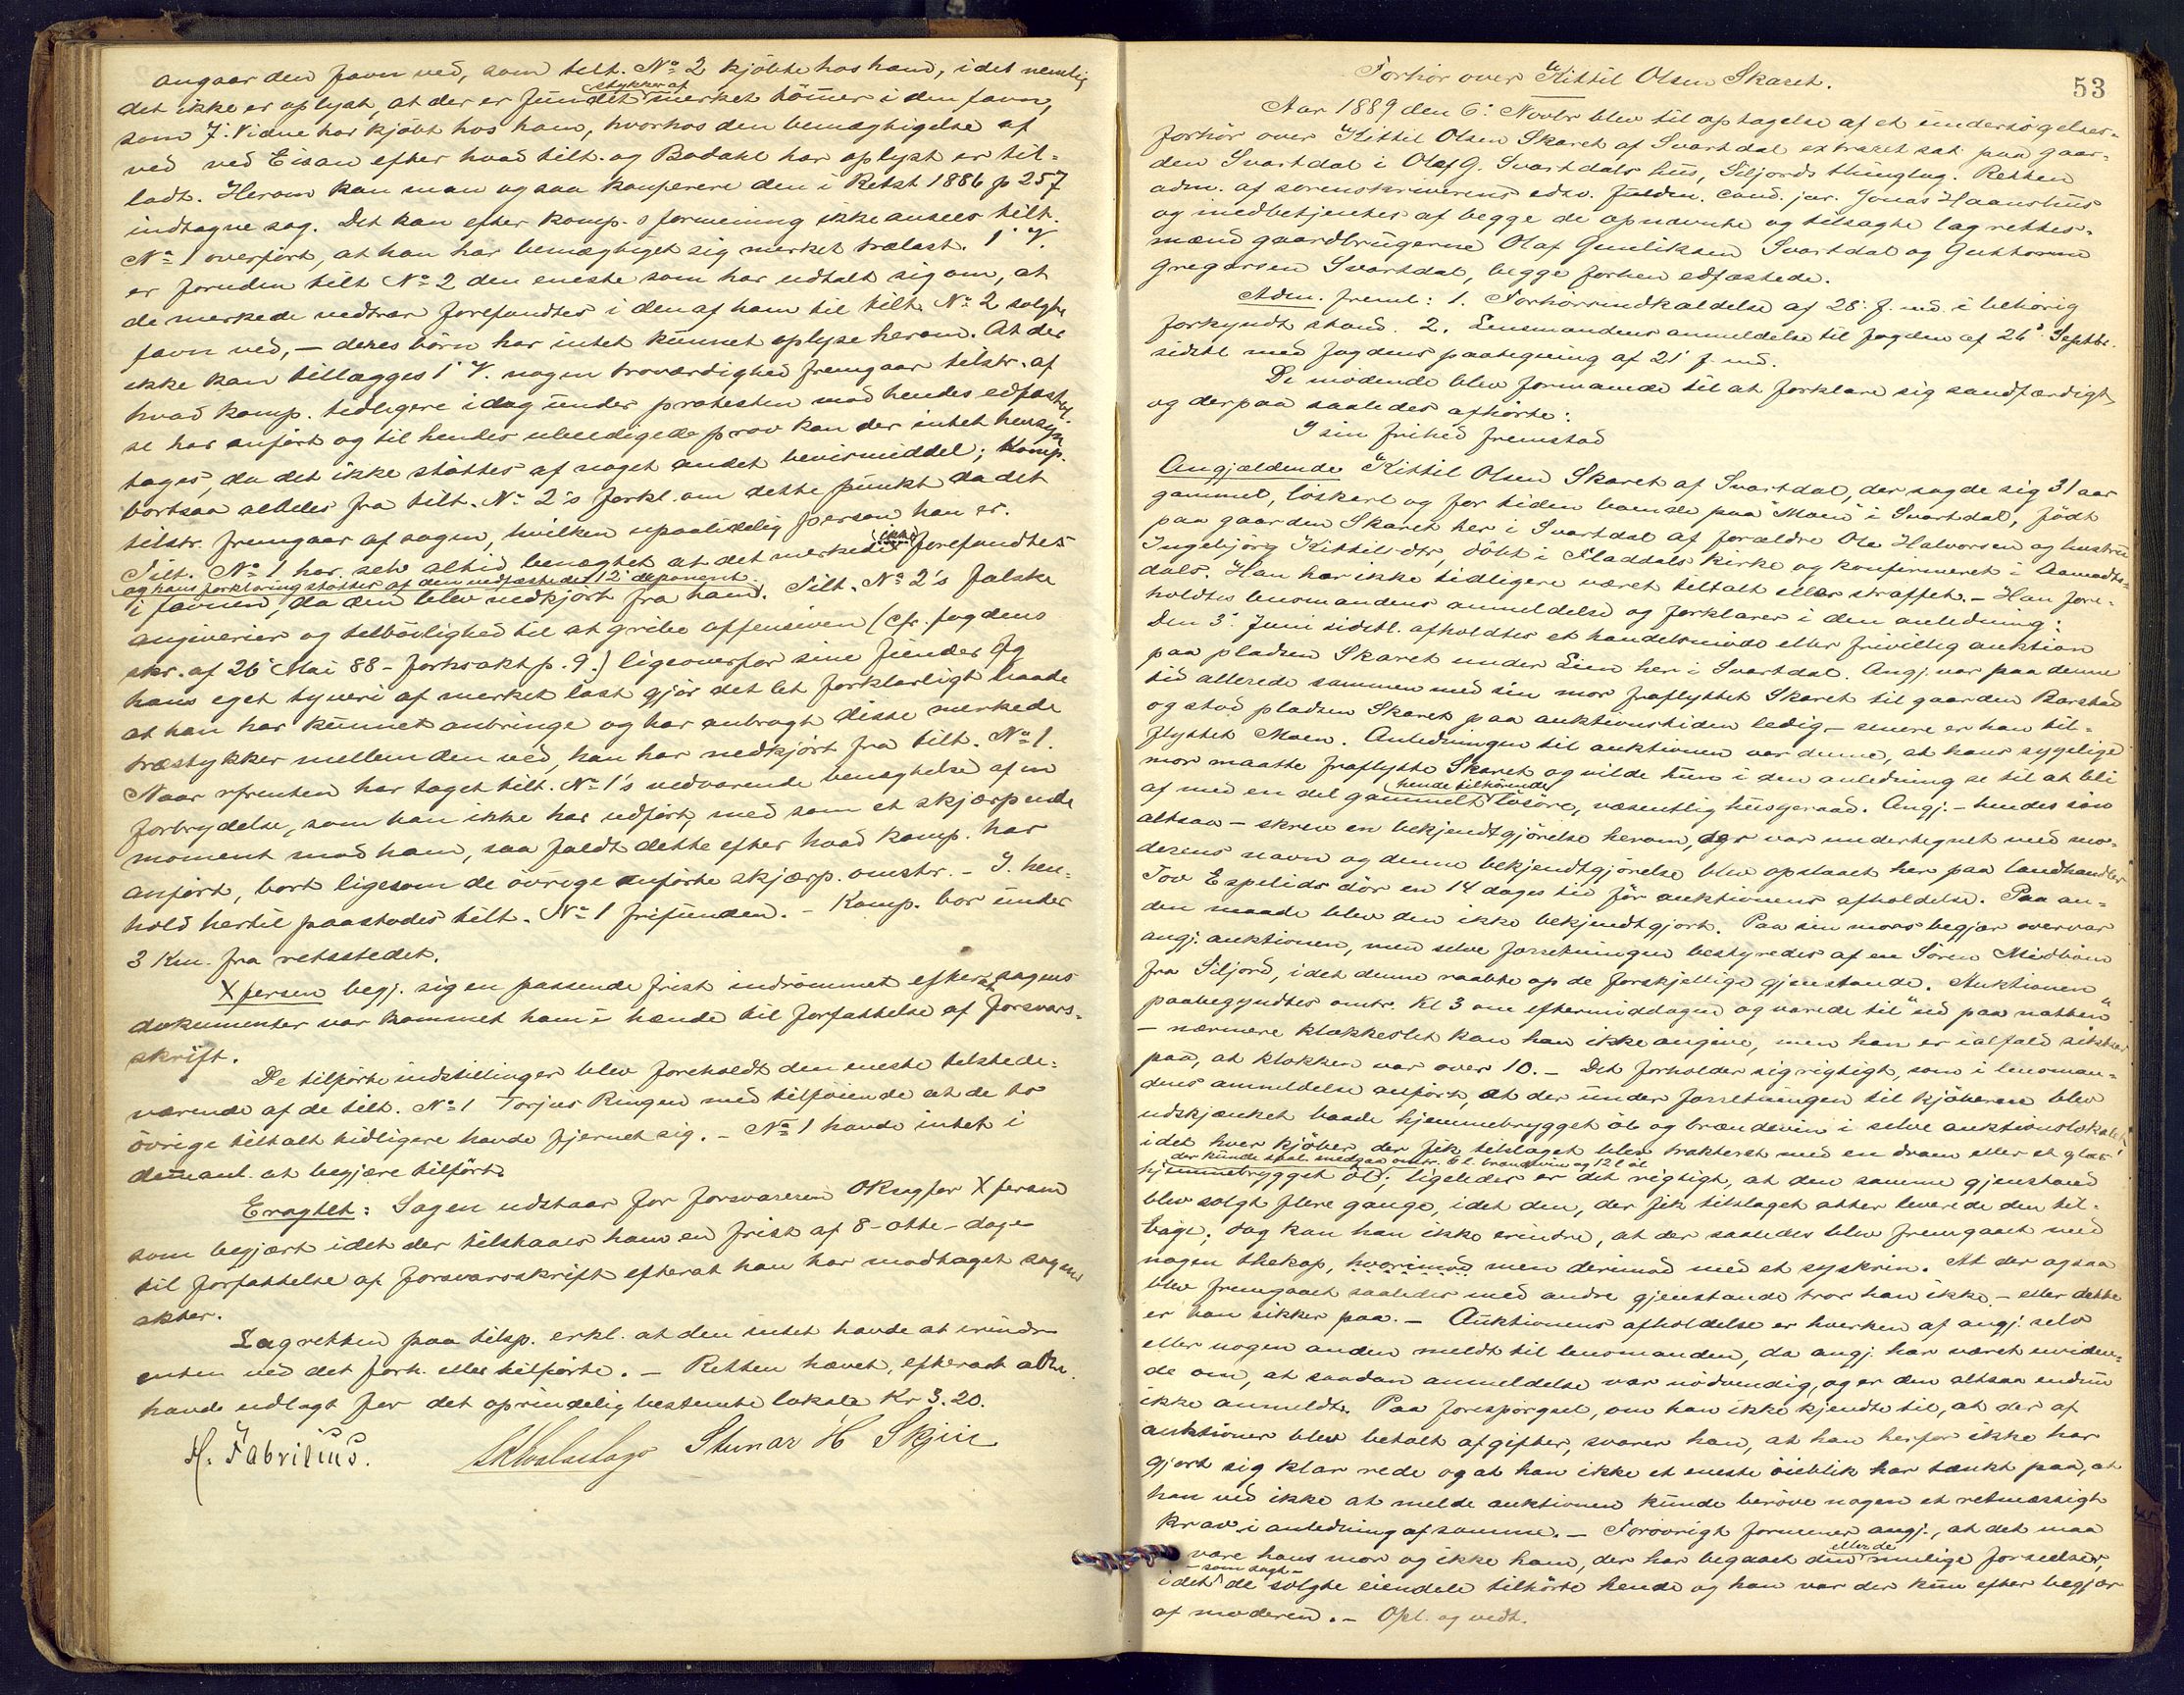 angaar den favn ved, som tilt. No 2 kjöbte hos ham, idet nemlig
det ikke er oplyst, at der er fundet stykker af merket tömmer i den favn,
som 7. Vidne har kjöbt hos ham, hvorhos den bemægtigelse af
ved ved Eisan efter hvad tilt. og Bodahl har oplyst er til-
ladt. Herom kan man ogsaa konferere den i Retst 1886 p 257
indtagne sag. Det kan efter komp.s formening ikke ansees tilt.
No 1 overfört, at han har bemægtiget sig merket trælast. 1' V.
er foruden tilt No 2 den eneste som har udtalt sig om, at
de merkede vedtrær forefandtes i den af ham til tilt. No 2 solgte
favn ved, — deres börn har intet kunnet oplyse herom. At der
ikke kan tillægges 1' V. nogen troværdighed fremgaar tilstr. af
hvad komp. tidligere idag under protesten mod hendes edfæstel-
se har anfört og til hendes ubeedigede prov kan der intet hensyn
tages, da det ikke stöttes af noget andet bevismiddel; komp.
bortsaa aldeles fra tilt. No 2's forkl. om dette punkt da det
tilstr. fremgaar af sagen, hvilken upaalidelig person han er.
Tilt. No 1 har selv altid benegtet at det merkede ikke forefandtes
og hans forklaring stöttes af den nedfæstede 12' deponent
i favnen, da den blev nedkjört fra ham. Tilt. No 2's falske
angiverier og tilböielighed til at gribe offensiven (cfr. fogdens
skr. af 26' Mai 88 - forhsakt p. 9.) ligeoverfor sine fiender og
hans eget tyveri af merket last gjör det let forklarligt baade
at han har kunnet anbringe og har anbragt disse merkede
træstykker mellem den ved, han har nedkjört fra tilt. No 1.
Naar frenten har taget tilt. No 1's vedvarende benegtelse af en
forbrydelse, som han ikke har udfört, med som et skjærpende
moment mod ham, saa faldt dette efter hvad komp. har
anfört, bort ligesom de övrige anförte skjærp. omstr. - I hen-
hold hertil paastodes tilt. No 1 frifunden. - Komp. bor under
3 Km. fra retsstedet.
Xfersen begj. sig en passende frist indrömmet efter at sagens
dokumenter var kommet ham i hænde til forfattelse af forsvars-
skrift.
De tilförte indstillinger blev foreholdt den eneste tilstede-
værende af de tilt. No 1 Torjus Ringen med tilföiende at de to
övrige tiltalt tidligere havde fjernet sig. - No 1 havde intet i
den anl. at begjære tilfört.
Eragtet: Sagen udstaar for forsvareren OKsagför Xfersen
som begjært idet der tilstaaes ham en frist af 8 - otte - dage
til forfattelse af forsvarsskrift efterat han har modtaget sagens
akter.
Lagretten paa tilsp. erkl. at den intet havde at erindre
enten ved det forh. eller tilförte. - Retten hævet, efterat adm.
havde udlagt for det oprindelig bestemte lokale Kr 3.20.
H. Fabritius. Stenar H Skjeie
53
Forhör over Kittil Olsen Skaret.
Aar 1889 den 6' Novbr blev til optagelse af et undersögelses-
forhör over Kittil Olsen Skaret af Svartdal extraret sat paa gaar-
den Svartdal i Olaf G. Svartdals hus, Siljords thinglag. Retten
adm. af sorenskriverens edsv. fuldm. cand. jur. Jonas Haanshus
og medbetjentes af begge de opnævnte og tilsagte lagrettes-
mænd gaardbrugerne Olaf Gunliksen Svartdal og Guttorm
Gregarsen Svartdal, begge forhen edfæstede.
Adm. freml: 1. Forhörsindkaldelse af 28' f. md. i behörig
forkyndt stand. 2. Lensmandens anmeldelse til fogden af 26' Septbr.
sidstl. med fogdens paategning af 21' f. md.
De mödende blev formanede til at forklare sig sandfærdigt
og derpaa saaledes afhörte:
I sin frihed fremstod
Angjældende Kittil Olsen Skaret af Svartdal, der sagde sig 31 aar
gammel, löskarl og for tiden boende paa "Moen" i Svartdal, födt
paa gaarden Skaret her i Svartdal af forældre Ole Halvorsen og hustru
Ingebjörg Kittilsdtr, döbt i Fladdals kirke og konfirmeret i Aamodts-
dals. Han har ikke tidligere været tiltalt eller straffet. - Han fore-
holdtes lensmandens anmeldelse og forklarer i den anledning:
Den 3' Juni sidstl. afholdtes et handelsmöde eller frivillig auktion
paa pladsen Skaret under Lien her i Svartdal. Angj. var paa denne
tid allerede sammen med sin mor fraflyttet Skaret til gaarden Barstad
og stod pladsen Skaret paa auktionstiden ledig, - senere er han til-
flyttet Moen. Anledningen til auktionen var denne, at hans sygelige
mor maatte fraflytte Skaret og vilde hun i den anledning se til at bli
af med en del gammelt hende tilhörende lösöre, væsentlig husgeraad. Angj. - hendes sön
altsaa - skrev en bekjendtgjörelse herom, der var undertegnet med mo-
derens navn og denne bekjendtgjörelse blev opslaaet her paa landhandler
Tov Espelids dör en 14 dages tid för auktionens afholdelse. Paa an-
den maade blev den ikke bekjendtgjort. Paa sin mors begjær overvar
angj. auktionen, men selve forretningen bestyredes af en Sören Midböen
fra Siljord, idet denne raabte op de forskjellige gjenstande. Auktionen
paabegyndtes omtr. Kl 3 om eftermiddagen og varede til "ud paa natten"
- nærmere klokkeslet kan han ikke angive, men han er ialfald sikker
paa, at klokken var over 10. - Det forholder sig rigtigt, som i lensman-
dens anmeldelse anfört, at der under forretningen til kjöberne blev
udskjænket baade hjemmebrygget öl og brændevin i selve auktionslokalet
idet hver kjöber, der fik tilslaget blev trakteret med en dram eller et glas
der kunde saal. medgaa omtr. 6 l. brændevin og 12 l öl
hjemmebrygget öl; ligeledes er det rigtigt, at den samme gjenstand
blev solgt flere gange, idet den, der fik tilslaget atter leverede den til-
bage; dog kan han ikke erindre, at der saaledes blev fremgaaet med
nogen thekop, hvorimod men derimod med et syskrin. At der ogsaa
blev fremgaaet saaledes med andre gjenstande tror han ikke - eller dette
er han sikker paa. - Auktionens afholdelse er hverken af angj. selv
eller nogen anden meldt til lensmanden, da angj. har været uviden-
de om, at saadan anmeldelse var nödvendig, og er den altsaa endnu
ikke anmeldt. Paa forespörgsel, om han ikke kjendte til, at der af
auktioner blev betalt afgifter, svarer han, at han herfor ikke har
gjort sig klar rede og at han ikke et eneste öieblik har tænkt paa, at
han ved ikke at melde auktionen kunde beröve nogen et retmæssigt
krav i anledning af samme. - Forövrigt formener angj., at det maa
være hans mor og ikke ham, der har begaaet den eller de mulige forseelser,
idet - som sagt - de solgte eiendele tilhörte hende og han var der kun efter begjær
af moderen. - Opl. og vedt.